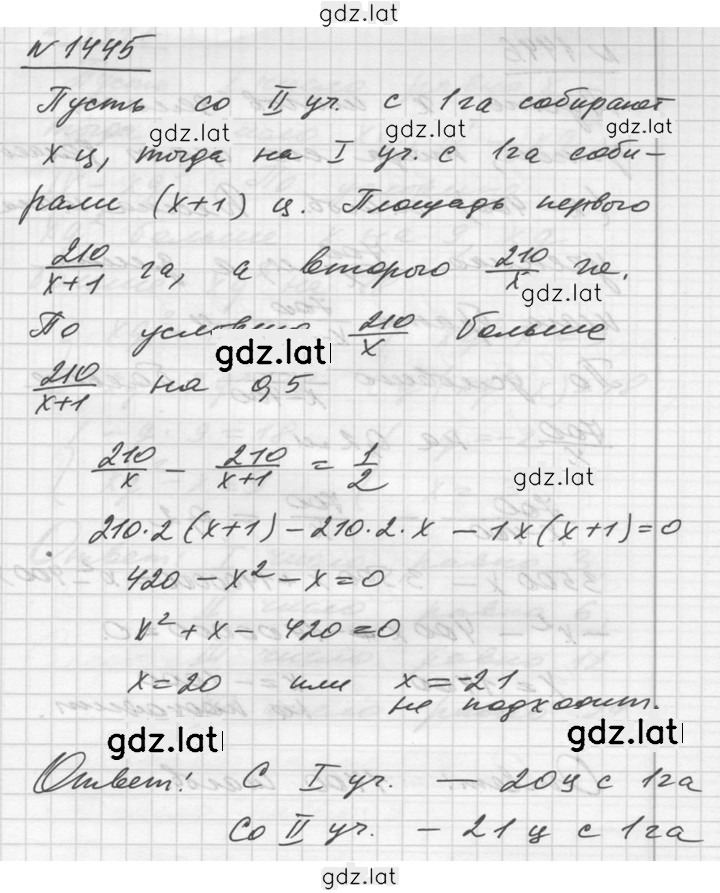 gdz.lat
N 1445
Пусть со II уч. с 1га собирают
gdz.lat gdz.lat
х ц, тогда на I уч. с 1га соби-
рали (x+1) ц. Площадь первого
210/x+1 га, а второго 210/x га.
gdz.lat
По условию 210/x больше
gdz.lat
210/x+1 на 0,5
210/x - 210/x+1 = 1/2
gdz.lat
210·2(x+1)-210·2·x-1x(x+1)=0
420-x²-x=0
x²+x-420=0
x=20 или x=-21
не подходит.
gdz.lat gdz.lat
Ответ: С I уч. - 20ц с 1га
Со II уч. - 21 ц с 1га
gdz.lat